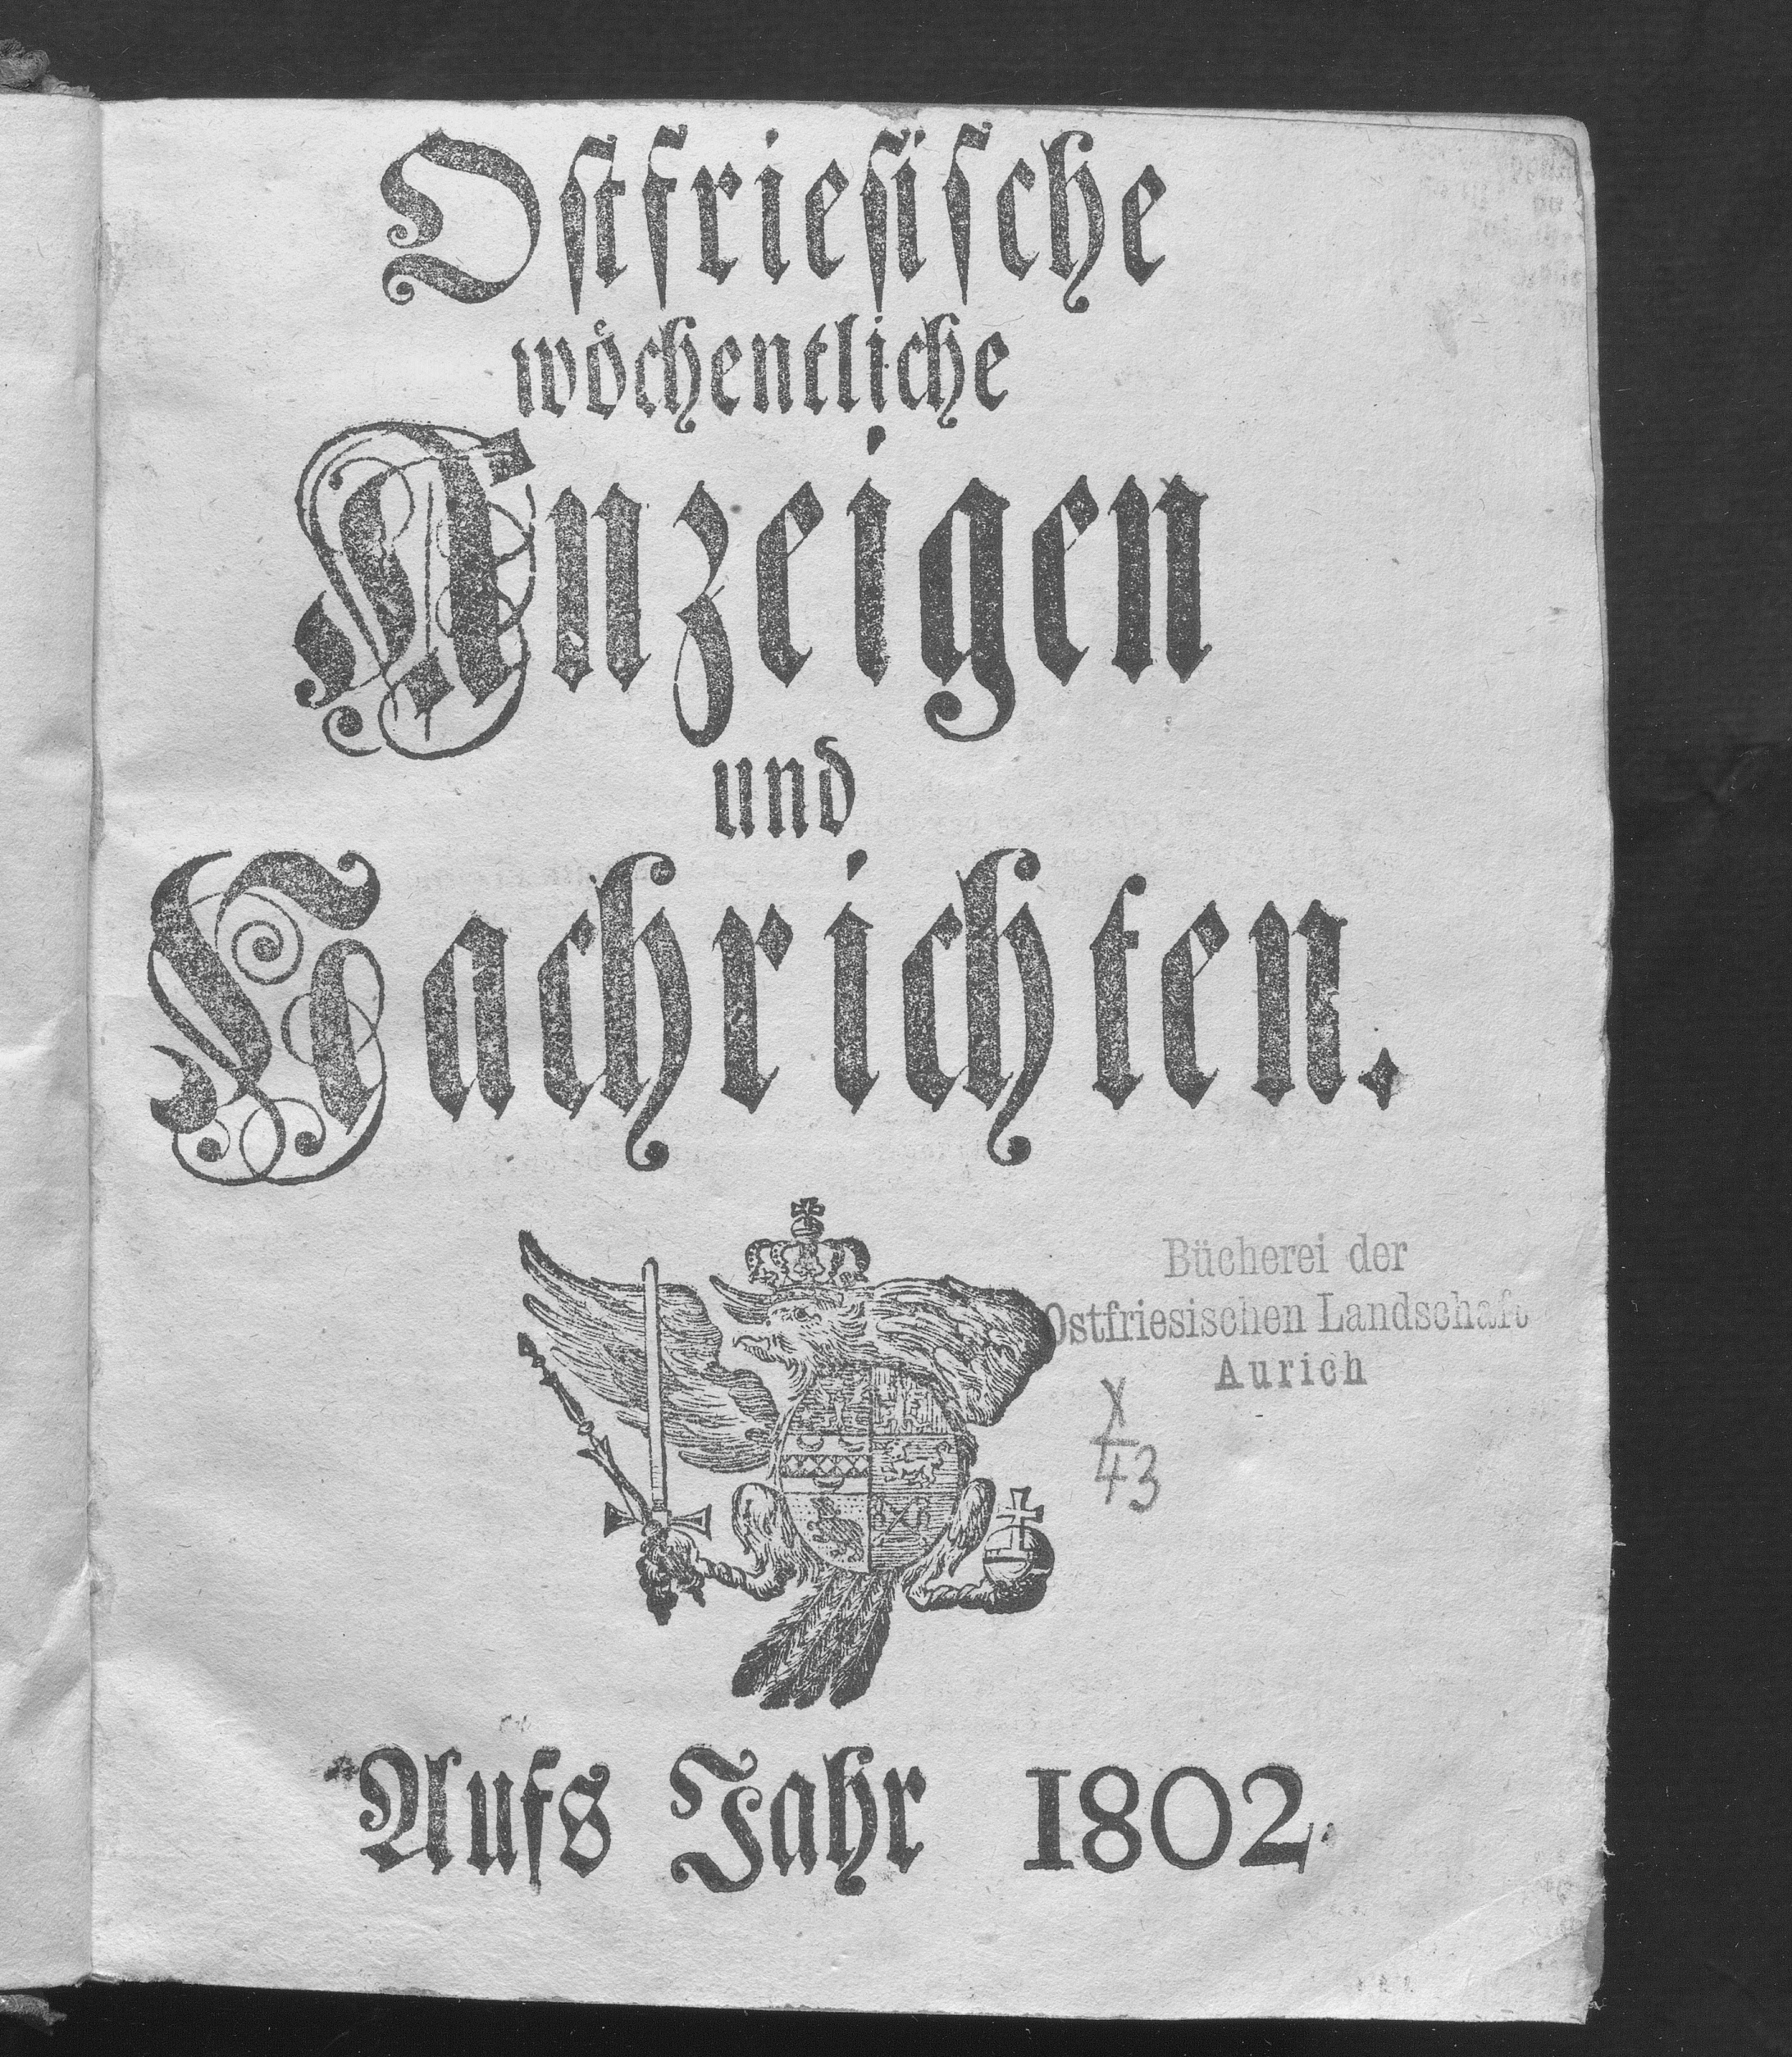 Ostfriesische
wöchentliche
Anzeigen
und
Nachrichten.
Bücherei der
Ostfriesischen Landschaft
Aurich
X
43
Aufs Jahr 1802.